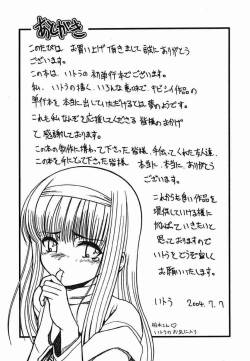 あとがき
このたびは お買い上げ頂きまして 誠にありがとう
ございます。
この本は、いトうの 初単行本でございます。
私、いトうの描く、いろんな意味で キビシイ作品の
単行本を 本当に 出していただけるとは 夢のようです。
これも私なぞを応援してくださる 皆様のおかげ
で 感謝しております。
この本の制作に携わって下さった皆様、手伝ってくれた友人達、
この本を手にとって下さった皆様 本当に、本当に、ありがとう
ございます。
これからも良い作品を
提供していける様に
頑張って いきたいと
思っておりますので
いトうを どうぞ 宜しく
お願いいたします。
いトう 2004. 7. 7
いトうのお気に入り